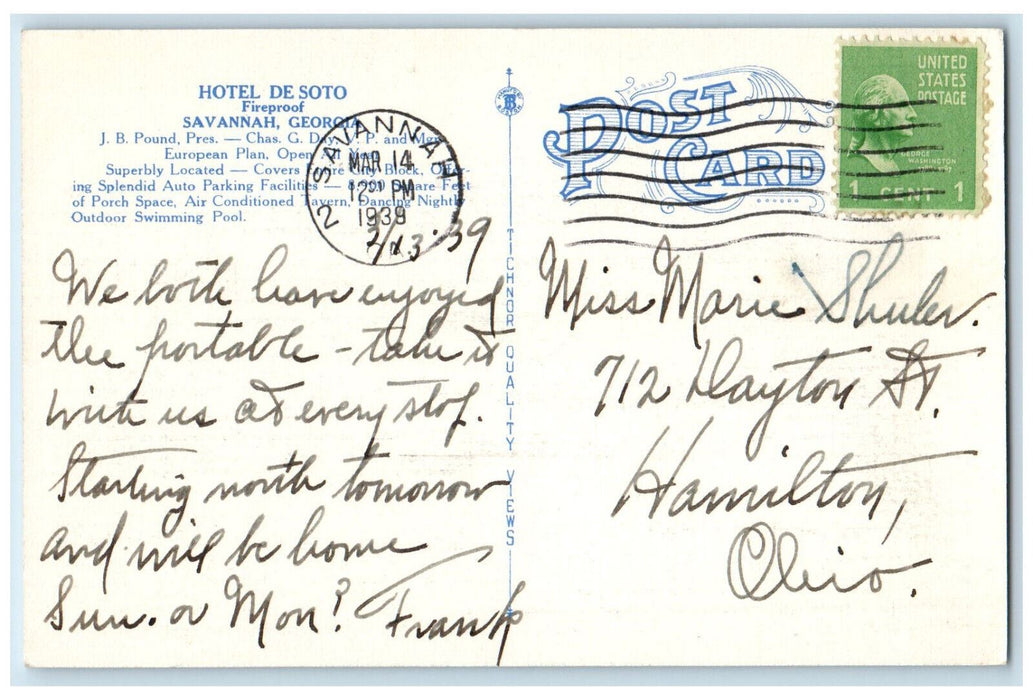 HOTEL DE SOTO
Fireproof
SAVANNAH, GEORGIA
J. B. Pound, Pres. — Chas. G. Day, V. P. and Mgr.
European Plan, Open All Year
Superbly Located — Covers Entire City Block, Offer-
ing Splendid Auto Parking Facilities — Square Feet
of Porch Space, Air Conditioned Tavern, Dancing Nightly
Outdoor Swimming Pool.
SAVANNAH
2
MAR 14
12 PM
1939
3/13.39
We both have enjoyed
the portable - take it
with us at every stop.
Starting north tomorrow
and will be home
Sun. or Mon? Frank
TICHNOR QUALITY VIEWS
POST
CARD
UNITED
STATES
POSTAGE
GEORGE
WASHINGTON
1 CENT 1
Miss Marie Shuler.
712 Dayton St.
Hamilton,
Ohio.